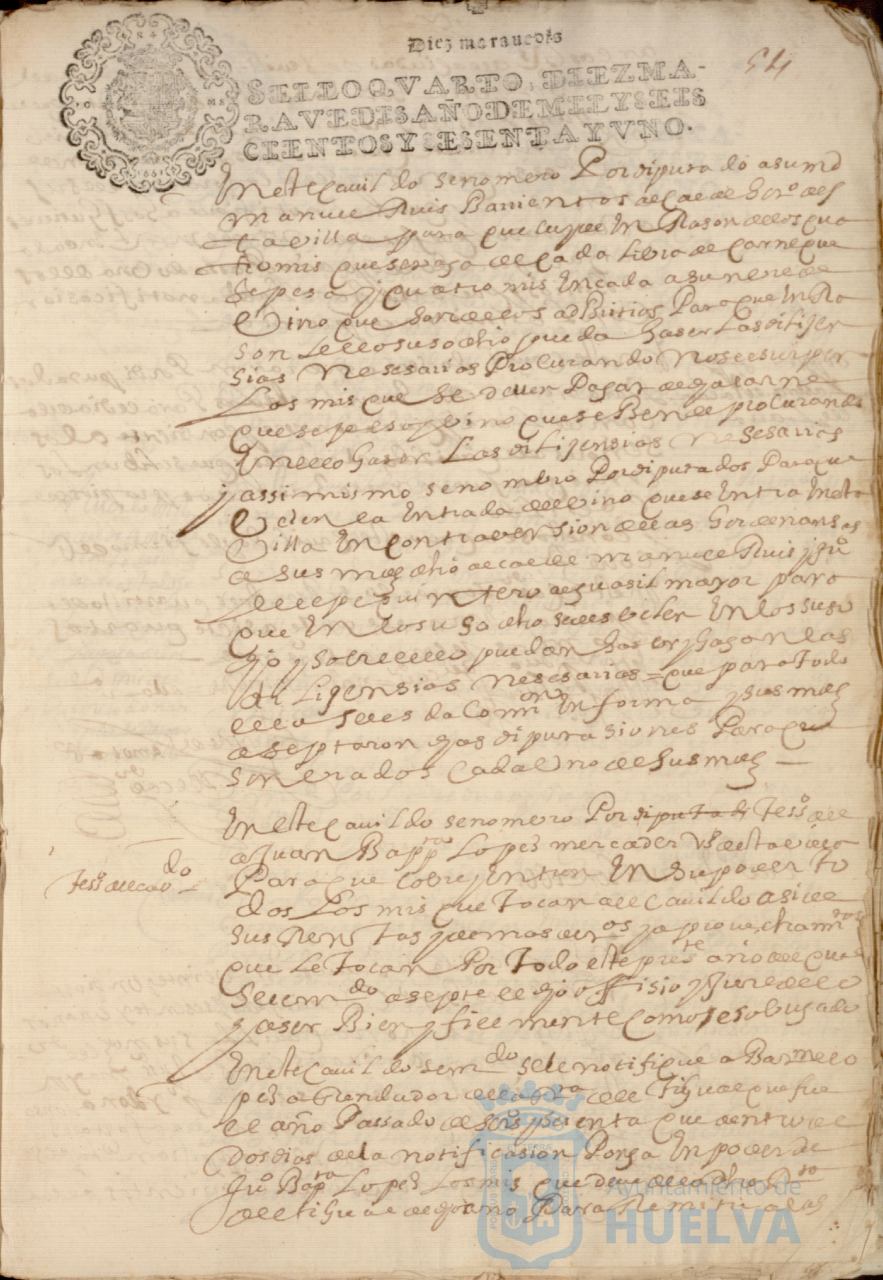 Diez marauedis
54
SELLO QVARTO, DIEZ MA-
RAVEDIS, AÑO DE MIL Y SEIS
CIENTOS Y SESENTA Y VNO.
En este Cauildo se nombro Por diputado a su md
manuel Ruis Barrientos alcalde hor.º desta
villa para que cuyde En Rason de los qua
tro mis que se paga de cada libra de carne que
se pesa y quatro mis En cada asunbre de
Vino que son de los adbitrios Para que En Ra
son de lo susodicho pueda haser Las dilijen
sias nesesarias Procurando no se
Los mis que se deuen Pagar de la carne
que se pesa y vino que se Bende procurando
En ello haser Las dilijensias nesesarias
y assi mismo se nombro Por diputados Para que
Celen la Entrada del vino que se Entra En esta
Villa En contrabersion de las hordenansas
a sus mds dho alcalde manuel Ruis y ju.º
de quintero alguasil mayor para
que En lo susodho selen En lo suso
dho y sobre ello puedan haser y hagan las
diligensias nesesarias = que para todo
ello se les da Comon En forma y sus mds
aseptaron las diputasiones Para que
son cada Vno de sus mds
En este Cauildo se nombro Por diputa de Tes.º del
a Juan Bapta Lopes mercader vº de esta villa
Para que cobre y Entren En su poder to
dos Los mis que Tocan al Cauildo asi de
sus Rentas y demas y aprouechamtos
que le Tocan Por Todo este preste año al qual
Se le mdo asepte el dho offisio y jure de lo
haser Bien y fielmente como es obligado
Tes.º del caudo
En este Cauildo se mdo se le notifique a Barme lo
pes arrendador de la Rta del que fue
el año Passado de seiss y sesenta que dentro de
dos dias de la notificasion Ponga En poder de
Ju.º Bapta Lopes Los mis que deue de la dha Rta
del de dho año Para Remitir a las
Ayuntamiento de
HUELVA